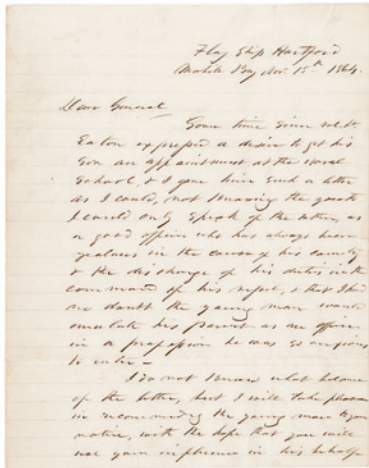 Flag Ship Hartford
Mobile Bay Nov. 15th 1864.
Dear General
Some time since
Eaton expressed a desire to get his
Son an appointment at the Naval
School, & I gave him such a letter
as I could, not knowing the youth
I could only speak of the father, as
a good officer who has always been
zealous in the cause of his country
& the discharge of his duties in the
command of his vessel, & that I had
no doubt the young man would
emulate his parent as an officer
in a profession he was so anxious
to enter -
I do not know what became
of the letter, but I will take pleasure
in recommending the young man to your
notice, with the hope that you will
use your influence in his behalf